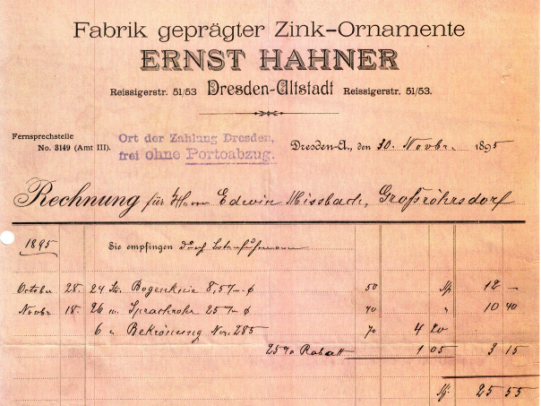 Fabrik geprägter Zink-Ornamente
ERNST HAHNER
Reissigerstr. 51/53 Dresden-Altstadt Reissigerstr. 51/53.
Fernsprechstelle
No. 3149 (Amt III).
Ort der Zahlung Dresden,
frei ohne Portoabzug.
Dresden-A., den 30. Novbr. 1895
Rechnung für Herrn Edwin Missbach, Großröhrsdorf
1895 Sie empfingen durch
October 28. 24 8,57 50 M 12 —
Novbr 18. 26 m. 25 40 " 10 40
6 " Bekrönung No. 285 70 4 20
25% Rabatt 1 05 3 15
M. 25 55